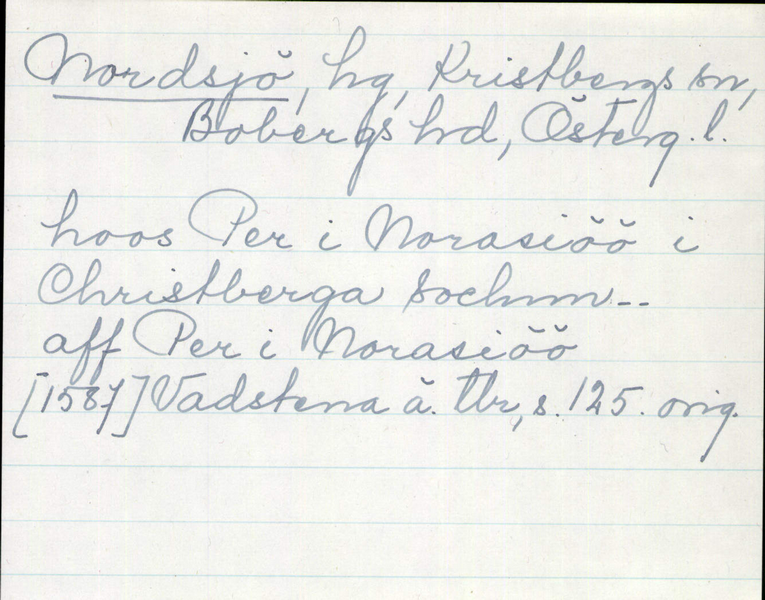 Nordsjö, hg, Kristbergs sn,
Bobergs hd, Österg. l.
hoos Per i Norasiöö i
Christberga sochnn--
aff Per i Norasiöö
[1587] Vadstena ä. tbr, s. 125. orig.